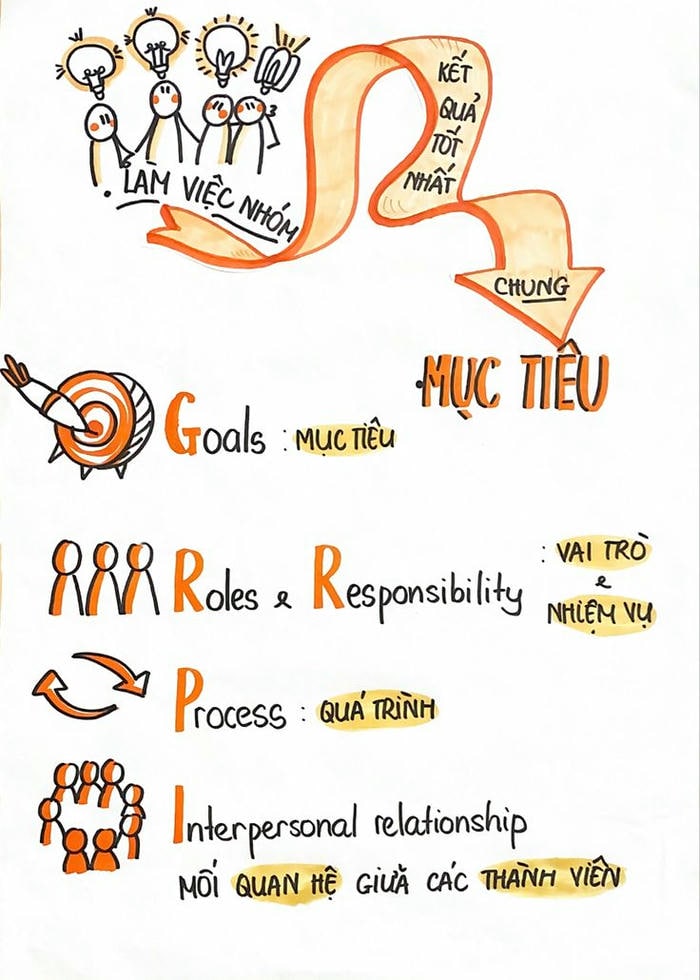 . LÀM VIỆC NHÓM
KẾT
QUẢ
TỐT
NHẤT
CHUNG
.MỤC TIÊU
Goals : MỤC TIÊU
Roles & Responsibility : VAI TRÒ
&
NHIỆM VỤ
Process : QUÁ TRÌNH
Interpersonal relationship
MỐI QUAN HỆ GIỮA CÁC THÀNH VIÊN